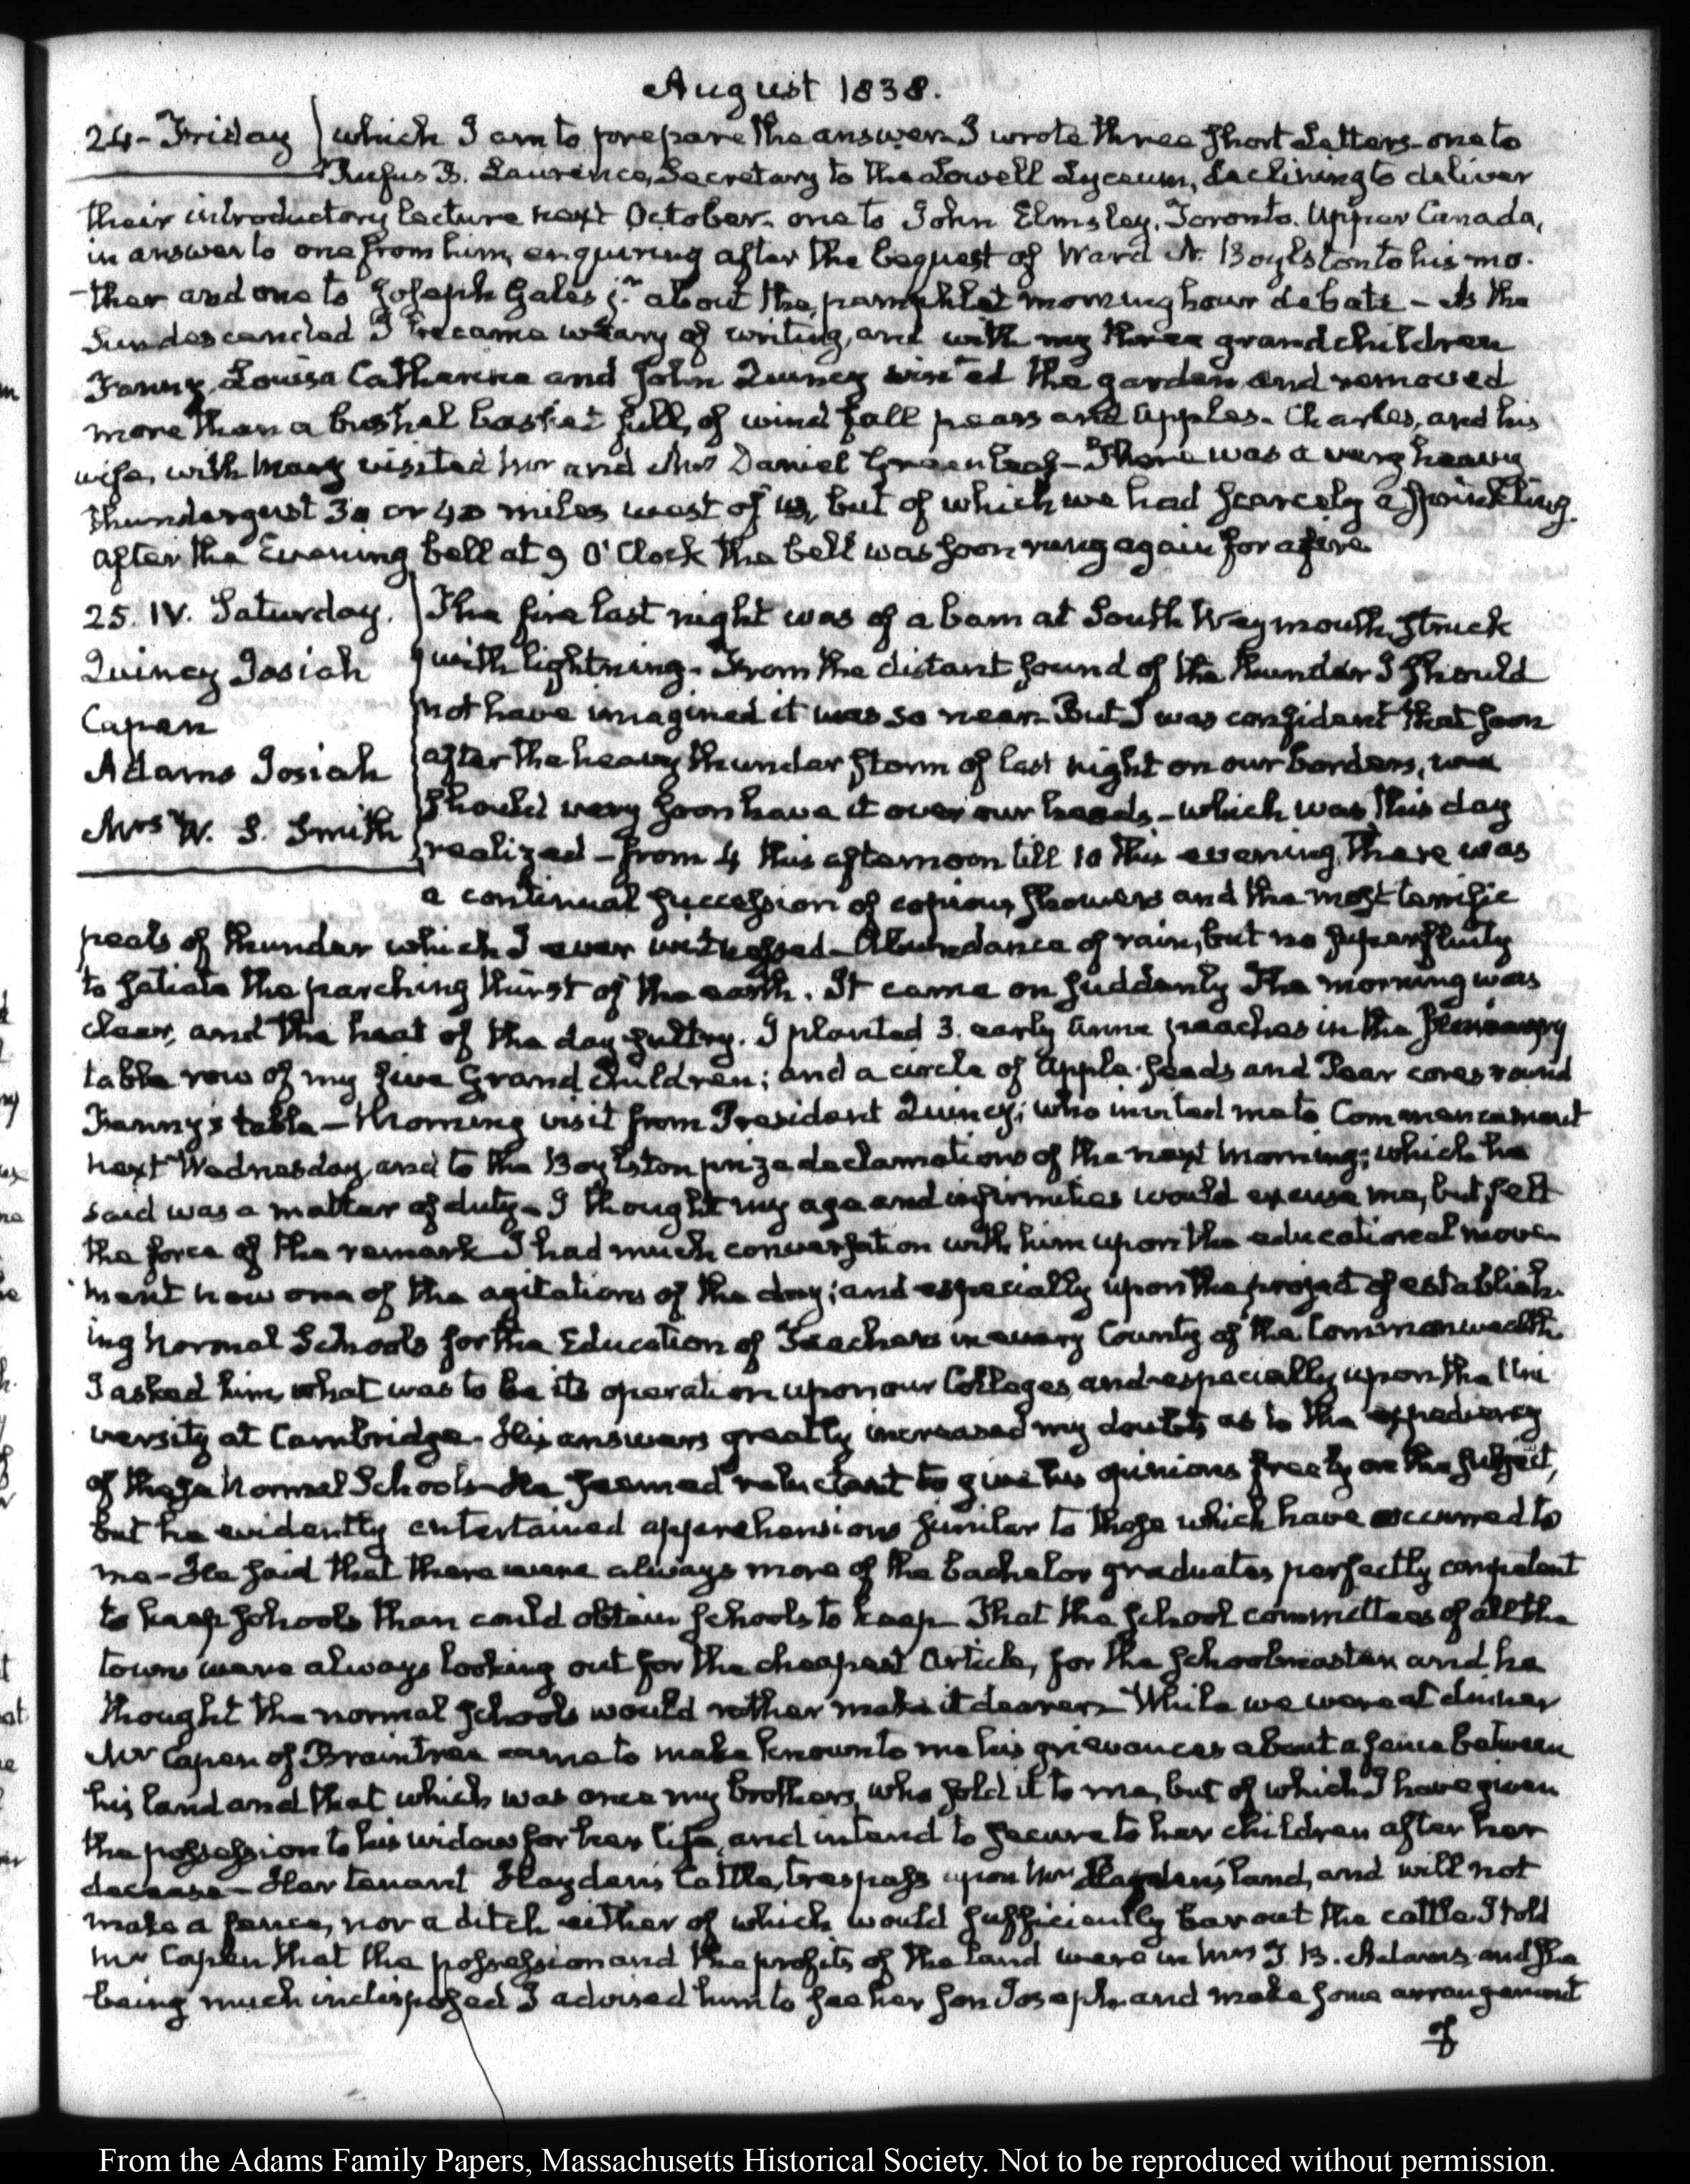 August 1838.
24- Friday which I am to prepare the answer. I wrote three short Letters- one to
Rufus B. Laurence, Secretary to the Lowell Lyceum, declining to deliver
their introductory lecture next October- one to John Elmsley, Toronto. Upper Canada,
in answer to one from him, enquiring after the bequest of Ward N. Boylston to his mo-
-ther and one to Joseph Gales jr. about the pamphlet morning hour debate- As the
Sun descended I became weary of writing, and with my three grandchildren
Fanny, Louisa Catherine and John Quincy visited the garden and removed
more than a bushel basket full, of wind fall pears and apples- Charles, and his
wife, with Mary visited Mr and Mrs Daniel Greenleaf- There was a very heavy
thundergust 30 or 40 miles west of us, but of which we had scarcely a sprinkling.
After the Evening bell at 9 O'Clock the bell was soon rung again for a fire.
25. IV. Saturday. The fire last night was of a barn at South Weymouth, struck
Quincy Josiah with lightning- From the distant sound of the thunder I should
Capen not have imagined it was so near- But I was confident that soon
Adams Josiah after the heavy thunder storm of last night on our borders, we
Mrs W. S. Smith should very soon have it over our heads- which was this day
realized- from 4 this afternoon till 10 this evening, there was
a continual succession of copious showers and the most terrific
peals of thunder which I ever witnessed- Abundance of rain, but no superfluity
to satiate the parching thirst of the earth. It came on suddenly The morning was
clear, and the heat of the day sultry. I planted 3. early Anne peaches in the
table row of my five Grand Children; and a circle of Apple-seeds and Pear cores round
Fanny's table- Morning visit from President Quincy; who invited me to Commencement
next Wednesday, and to the Boylston prize declamations of the next morning; which he
said was a matter of duty- I thought my age and infirmities would excuse me, but felt
the force of the remark I had much conversation with him upon the educational move-
ment now one of the agitations of the day; and especially upon the project of establish-
ing Normal Schools for the Education of Teachers in every County of the Commonwealth
I asked him, what was to be its operation upon our Colleges, and especially upon the Uni
versity at Cambridge- His answers greatly increased my doubts as to the expediency
of these Normal Schools- He seemed reluctant to give his opinions freely on the subject,
but he evidently entertained apprehensions similar to those which have occurred to
me- He said that there were always more of the bachelor graduates perfectly competent
to keep schools than could obtain schools to keep- That the School committees of all the
towns were always looking out for the cheapest Article, for the schoolmaster and he
thought the normal schools would rather make it dearer- While we were at dinner
Mr Capen of Braintree came to make known to me his grievances about a fence between
his land and that which was once my brothers, who sold it to me, but of which I have given
the possession to his widow for her life, and intend to secure to her children after her
decease- Her tenant Hayden's Cattle, trespass upon Mr land, and will not
make a fence, nor a ditch either of which would sufficiently bar out the cattle I told
Mr Capen that the possession and the profits of the land were in Mrs T. B. Adams and she
being much indisposed I advised him to see her son Joseph and make some arrangement
From the Adams Family Papers, Massachusetts Historical Society. Not to be reproduced without permission.